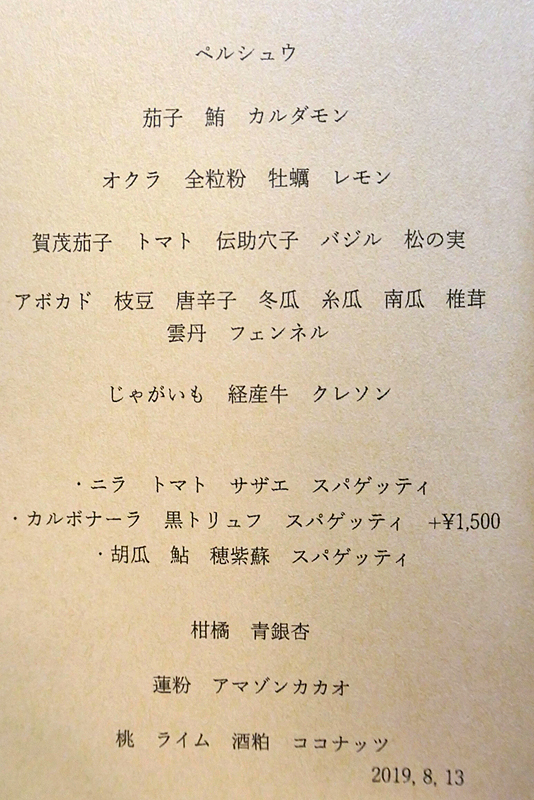 ペルシュウ
茄子 鮪 カルダモン
オクラ 全粒粉 牡蠣 レモン
賀茂茄子 トマト 伝助穴子 バジル 松の実
アボカド 枝豆 唐辛子 冬瓜 糸瓜 南瓜 椎茸
雲丹 フェンネル
じゃがいも 経産牛 クレソン
・ニラ トマト サザエ スパゲッティ
・カルボナーラ 黒トリュフ スパゲッティ +¥1,500
・胡瓜 鮎 穂紫蘇 スパゲッティ
柑橘 青銀杏
蓮粉 アマゾンカカオ
桃 ライム 酒粕 ココナッツ
2019, 8, 13